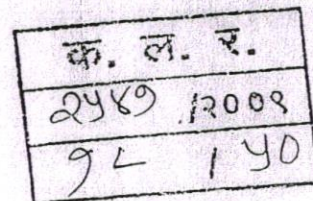 क. ल. र.
२५४१ /२००९
१८ / ५०